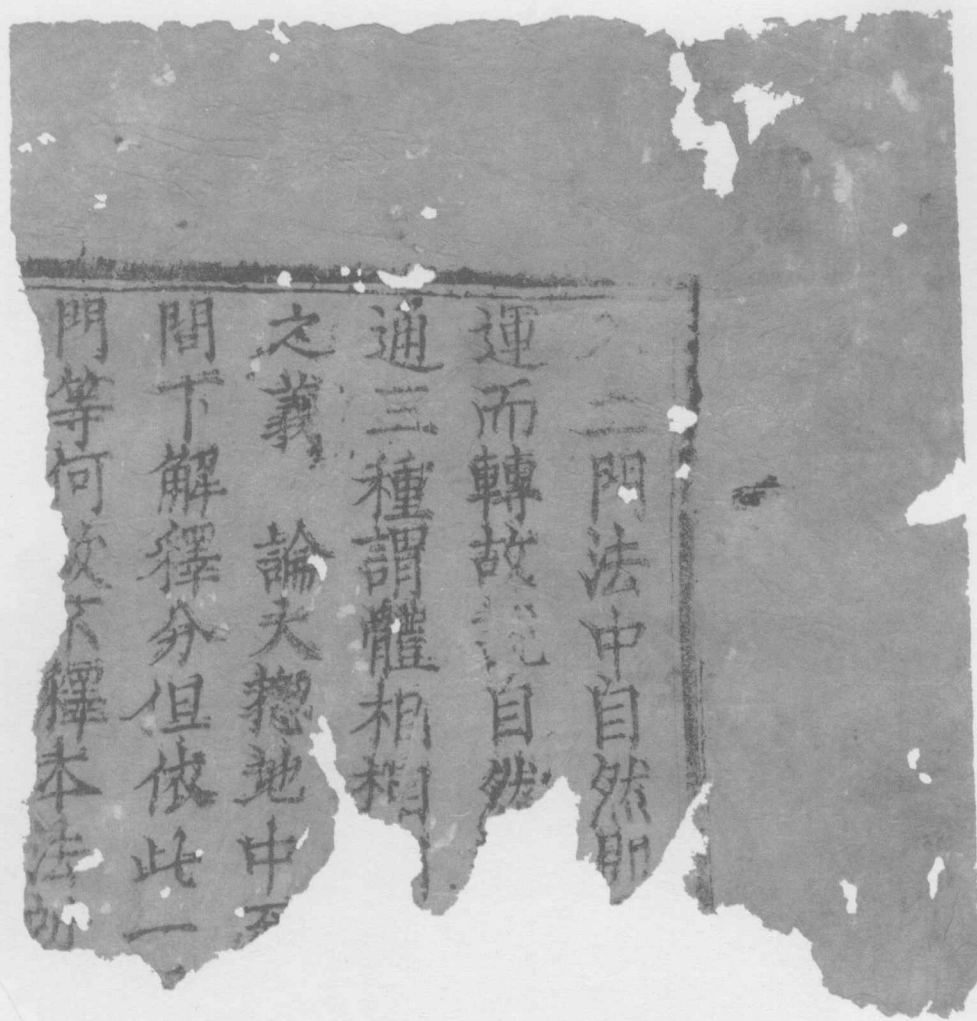 二門法中自然即
運而轉故說自然
通三種謂體相相
之義　論夫揔地中至
間下解釋分但依此一
門等何故不釋本法